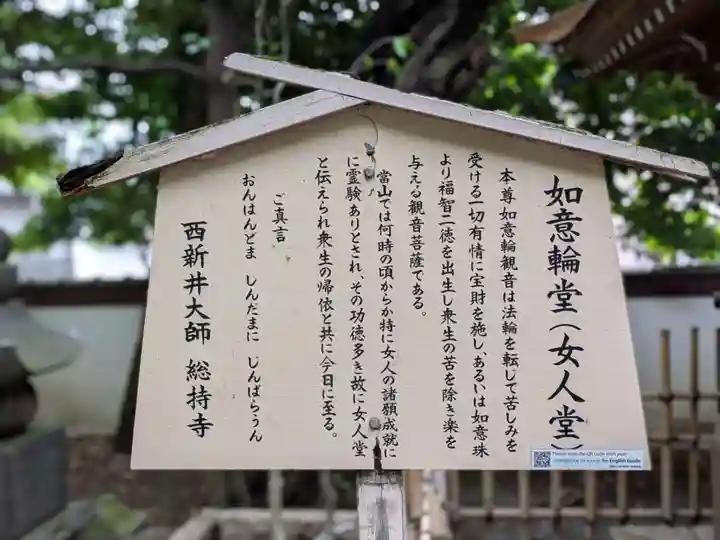 如意輪堂(女人堂)
本尊如意輪観音は法輪を転じて苦しみを
受ける一切有情に宝財を施し、あるいは如意珠
より福智二徳を出生し衆生の苦を除き楽を
与える観音菩薩である。
當山では何時の頃からか特に女人の諸願成就に
に霊験ありとされ、その功徳多き故に女人堂
と伝えられ衆生の帰依と共に今日に至る。
ご真言
おんはんどま しんだまに じんばらうん
西新井大師 総持寺
for English Guide